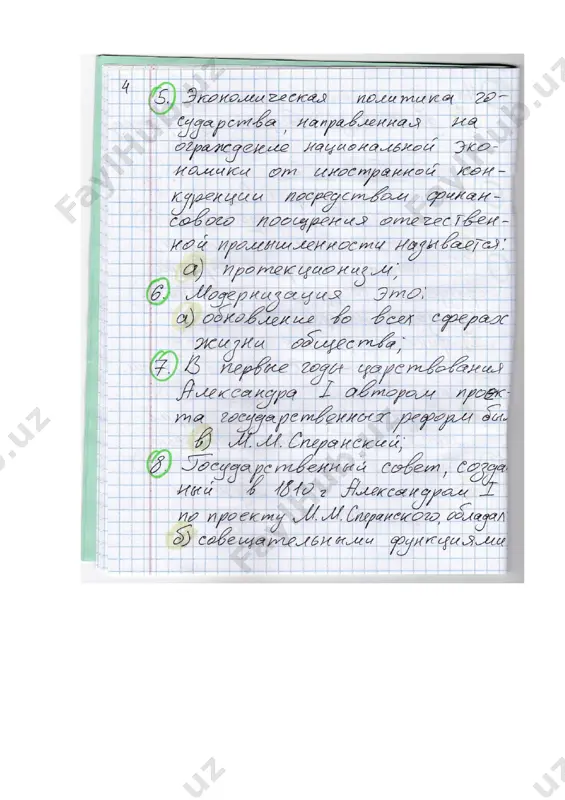 4
5. Экономическая политика го-
сударства, направленная на
ограждение национальной эко-
номики от иностранной кон-
куренции посредством финан-
сового поощрения отечествен-
ной промышленности называется:
а) протекционизм;
6. Модернизация это:
а) обновление во всех сферах
жизни общества;
7. В первые годы царствования
Александра I автором проек-
та государственных реформ бы
в) М.М. Сперанский;
8 Государственный совет, созда
ный в 1810 г Александром I
по проекту М.М. Сперанского, обладал
б) совещательными функциями
FaylHub.uz
FaylHub.uz
FaylHub.uz
uz
uz